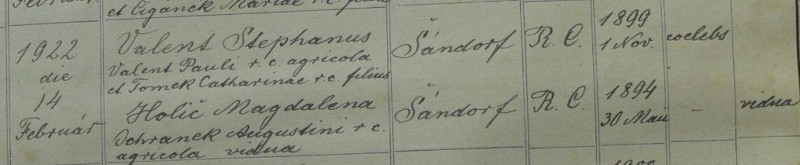 et Ciganek Mariae r. c. filia
1922
die
14
Február
Valent Stephanus
Valent Pauli r. c. agricola
et Tomek Catharinae r. c. filius
Šándorf
R. C.
1899
1 Nov.
coelebs
Holič Magdalena
Ochranek Augustini r. c.
agricola vidua
Šándorf
R. C.
1894
30 Maii
-
vidua